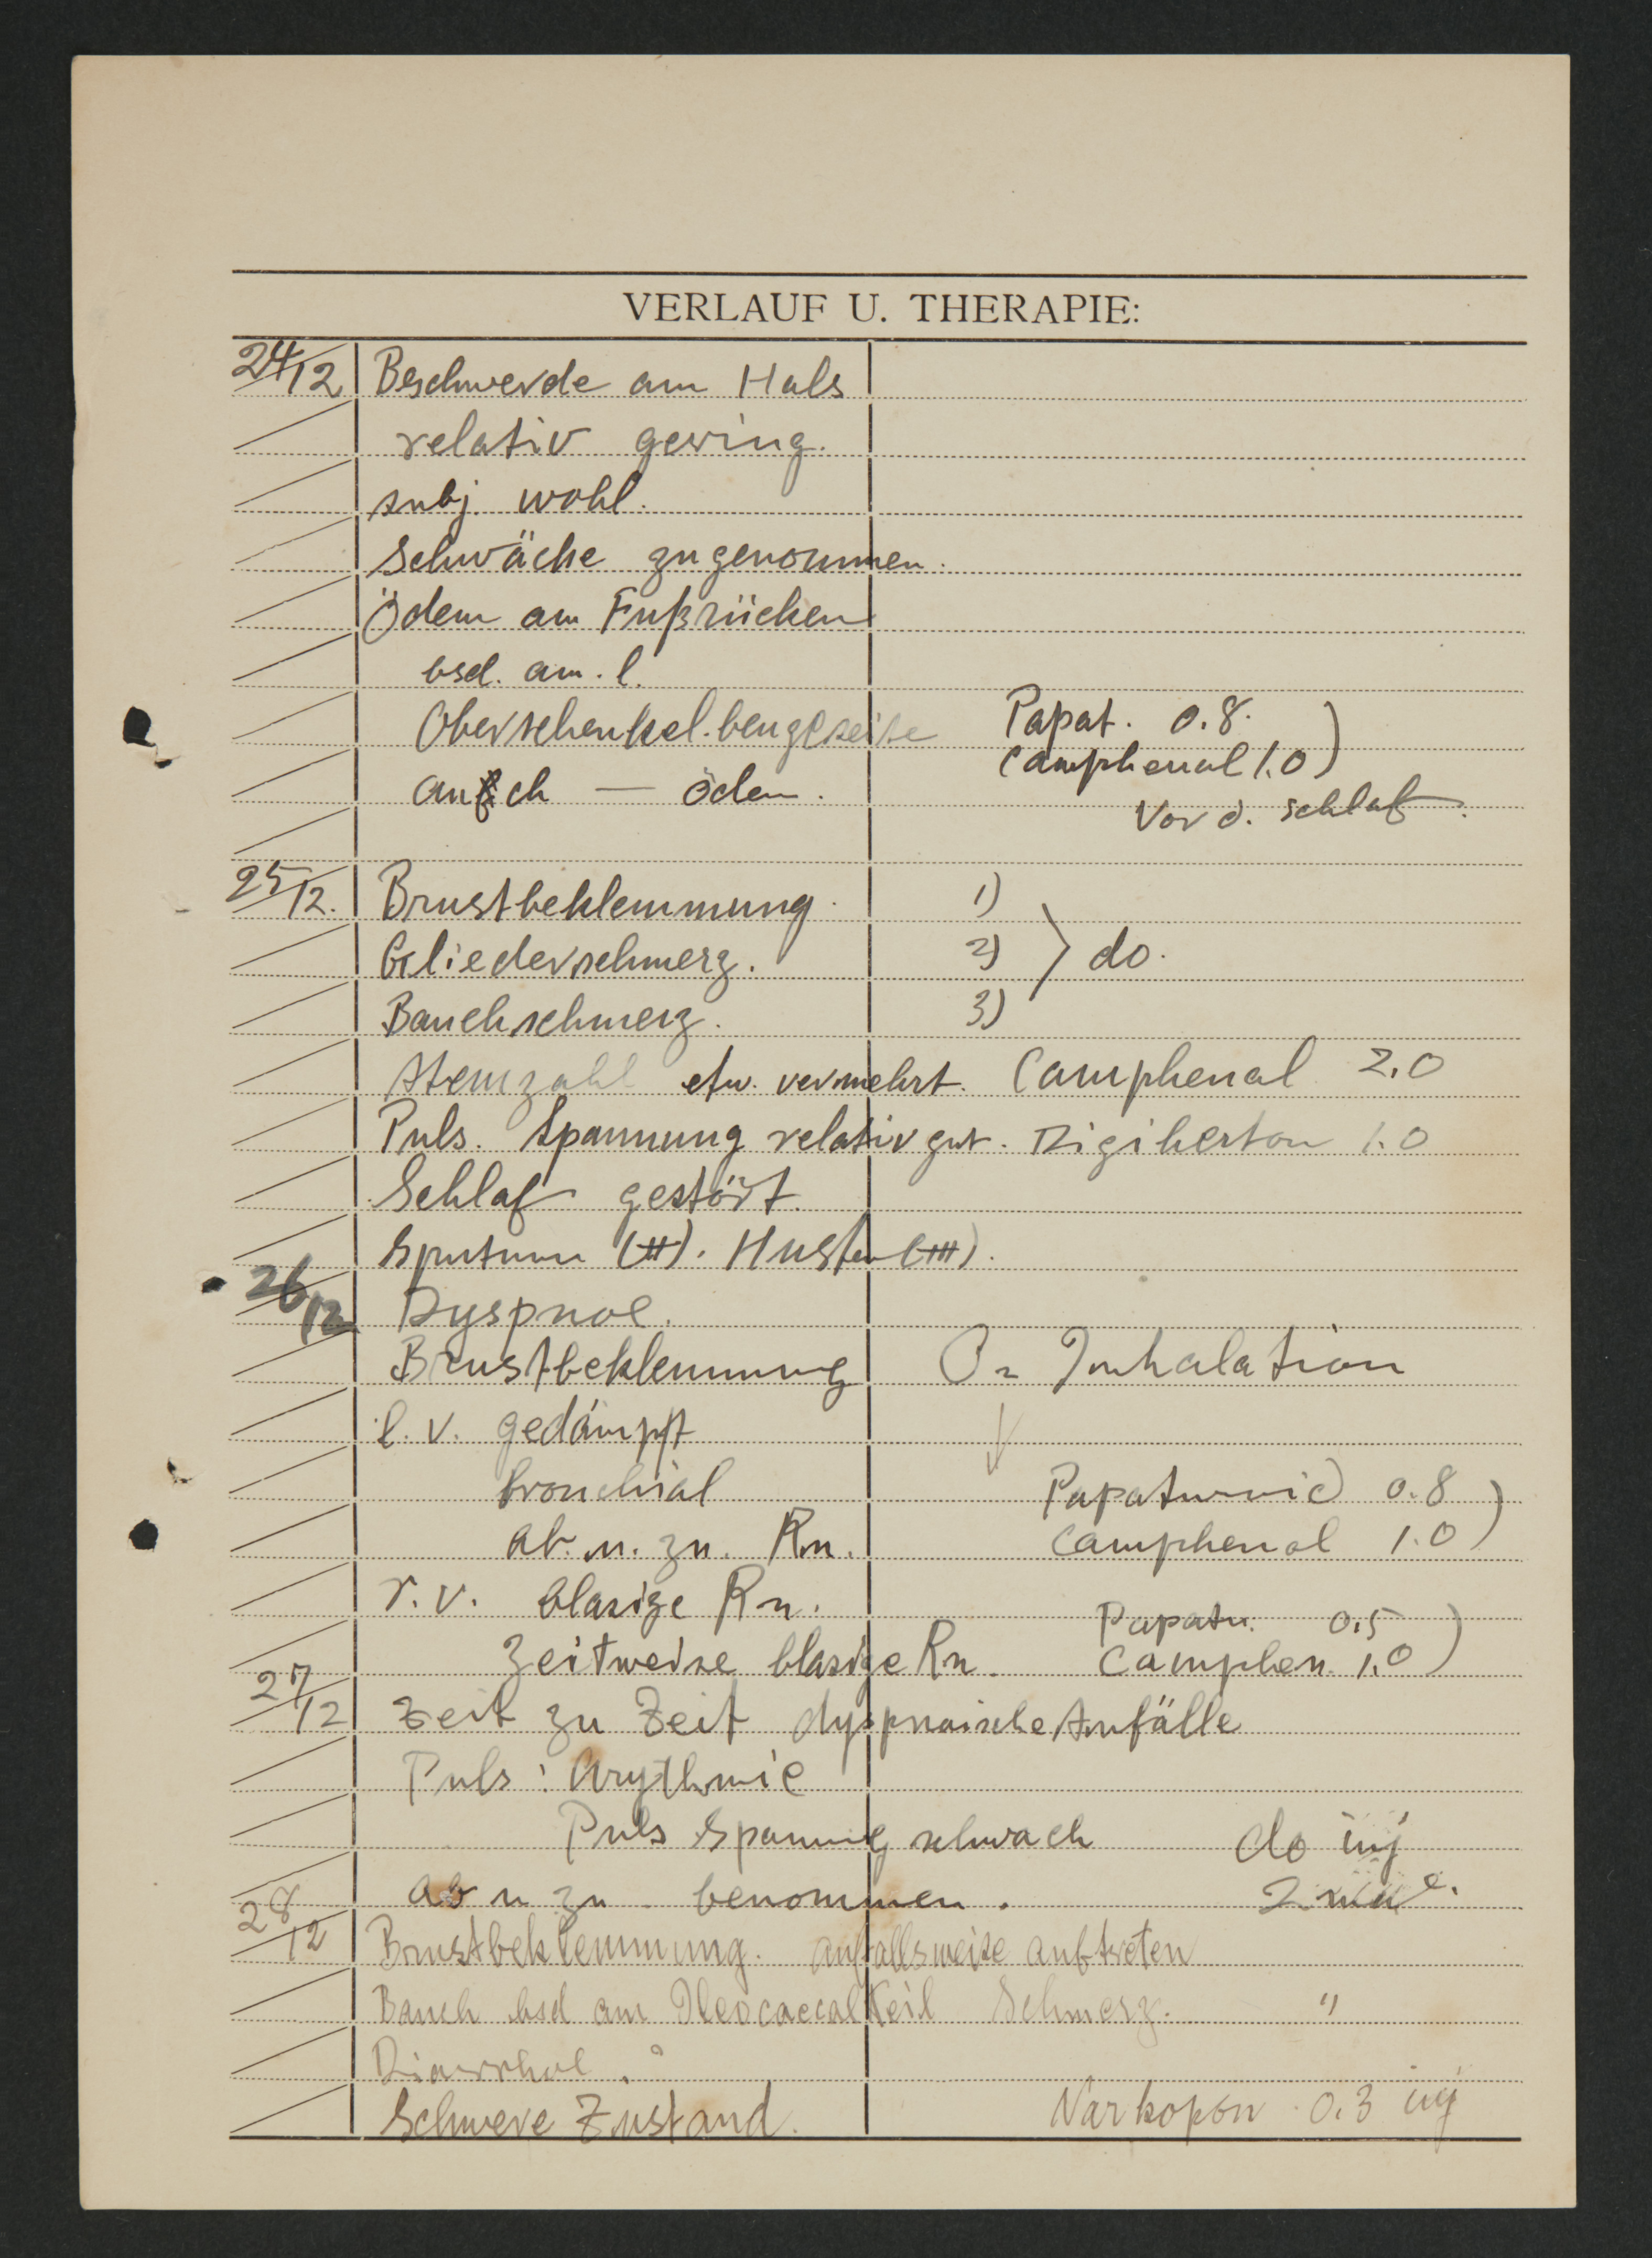 VERLAUF U. THERAPIE:
24/12 Beschwerde am Hals
relativ gering.
subj. wohl.
Schwäche zugenommen.
Ödem am Fußrücken
bsd. am. l.
Oberschenkel.beugeseite Papat. 0.8.
auch — ödem. Camphenal 1.0)
Vor d. schlaf.
25/12. Brustbeklemmung. 1)
Gliederschmerz. 2) } do.
Bauchschmerz. 3)
Atemzahl etw. vermehrt. Camphenal 2.0
Puls. Spannung relativ gut. Digiherton 1.0
Schlaf gestört.
Sputum (++). Husten (+++).
26/12 Dyspnoe.
Brustbeklemmung O2 Inhalation
l. v. gedämpft ↓
bronchial Papatumid 0.8
ab. u. zu. Rn. Camphenal 1.0)
r. v. blasige Rn.
Papatu. 0.5
Zeitweise blasige Rn. Camphen. 1.0)
27/12 Zeit zu Zeit dyspnoische Anfälle
Puls: Arythmie
Puls Spannung schwach do inj
ab u zu benommen. 2 mal.
28/12 Brustbeklemmung. anfallsweise auftreten
Bauch bsd am Ileocaecal Teil Schmerz. "
Diarrhoe.
Schwere Zustand. Narkopon 0.3 inj